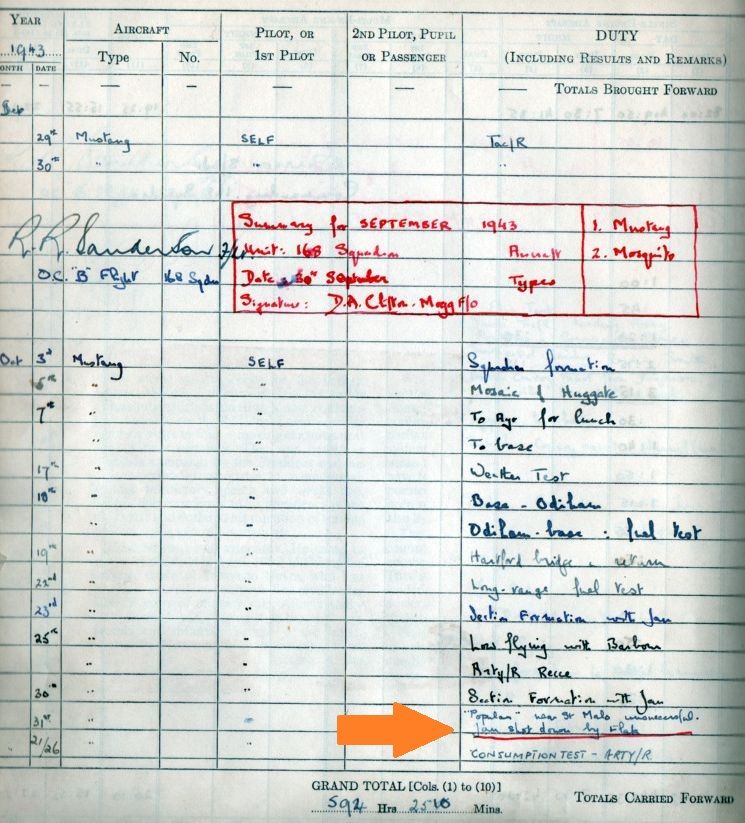 YEAR AIRCRAFT PILOT, OR 2ND PILOT, PUPIL DUTY
1943 Type No. 1ST PILOT OR PASSENGER (INCLUDING RESULTS AND REMARKS)
ONTH DATE
— — — — — — —— TOTALS BROUGHT FORWARD
Sep
29th Mustang SELF Tac/R
30th " " "
R. R. Sanderson F/Lt
O.C. "B" Flight 168 Sqdn
Summary for SEPTEMBER 1943 1. Mustang
Unit: 168 Squadron Aircraft 2. Mosquito
Date: 30th September Types
Signature: D.A. Clifton-Mogg F/O
Oct 3rd Mustang SELF Squadron formation
" " Mosaic of Huggate
7th " " To Ayr for lunch
" " To base
17th " " Weather Test
18th " " Base - Odiham
" " Odiham-base : fuel test
19th " " Hartford bridge & return
22nd " " Long-range fuel test
23rd " " Section Formation with Jan
25th " " Low flying with Barbour
" " Arty/R Recce
30th " " Section Formation with Jan
31st " " "Popular" near St Malo unsuccessful.
Jan shot down by Flak
21/26 " " CONSUMPTION TEST - ARTY/R
GRAND TOTAL [Cols. (1) to (10)]
592 Hrs Mins.
TOTALS CARRIED FORWARD